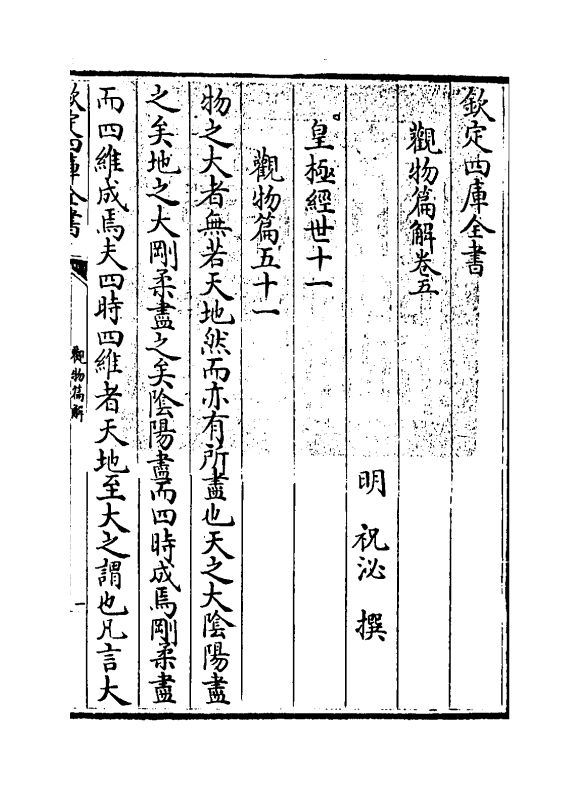 欽定四庫全書
觀物篇解卷五
明 祝泌 撰
皇極經世十一
觀物篇五十一
物之大者無若天地然而亦有所盡也天之大陰陽盡
之矣地之大剛柔盡之矣陰陽盡而四時成焉剛柔盡
而四維成焉夫四時四維者天地至大之謂也凡言大
欽定四庫全書
觀物篇解
一